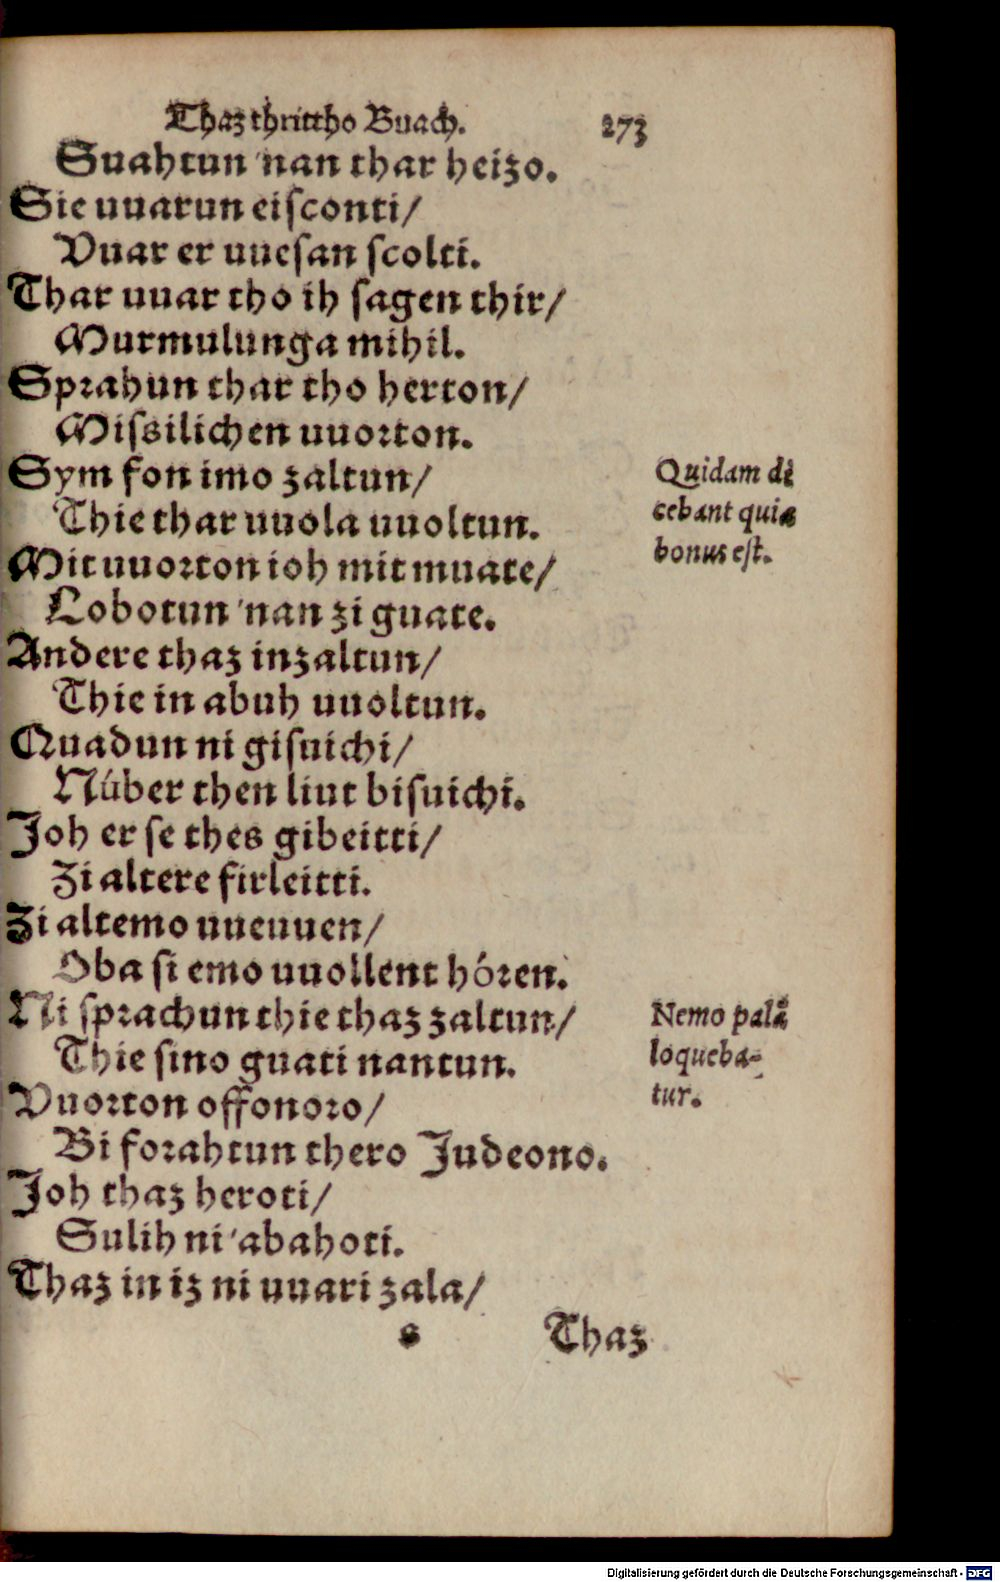 Thaz thrittho Buach. 273
Suahtun 'nan thar heizo.
Sie uuarun eisconti/
Vuar er uuesan scolti.
Thar uuar tho ih sagen thir/
Murmulunga mihil.
Sprahun thar tho herton/
Missilichen uuorton.
Sym fon imo zaltun/
Thie thar uuola uuoltun.
Mit uuorton ioh mit muate/
Lobotun 'nan zi guate.
Andere thaz inzaltun/
Thie in abuh uuoltun.
Quadun ni gisuichi/
Nûber then liut bisuichi.
Joh er se thes gibeitti/
Zi altere firleitti.
Zi altemo uueuuen/
Oba si emo uuollent hóren.
Ni sprachun thie thaz zaltun/
Thie sino guati nantun.
Vuorton offonoro/
Bi forahtun thero Judeono.
Joh thaz heroti/
Sulih ni 'abahoti.
Thaz in iz ni uuari zala/
s Thaz
Quidam di
cebant quia
bonus est.
Nemo palã
loqueba-
tur.
Digitalisierung gefördert durch die Deutsche Forschungsgemeinschaft - DFG